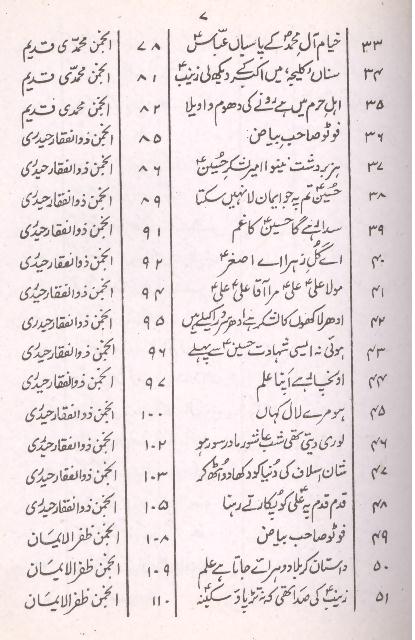 ۷
۳۳ خیام آلِ محمدؐ کے پاسباں عباسؑ ۷۸ انجمن محمدی قدیم
۳۴ سناں کلیجہ میں اکبرؑ کے دیکھ لی زینبؑ ۸۱ انجمن محمدی قدیم
۳۵ اہل حرم میں ہے رونے کی دھوم واویلا ۸۲ انجمن محمدی قدیم
۳۶ فوٹو صاحب بیاض ۸۵ انجمن ذوالفقار حیدری
۳۷ ہزبر دشت نینوا امیر لشکر حسینؑ ۸۶ انجمن ذوالفقار حیدری
۳۸ حسینؑ تم پہ جو ایمان لا نہیں سکتا ۸۹ انجمن ذوالفقار حیدری
۳۹ سدا رہے گا حسینؑ کا غم ۹۱ انجمن ذوالفقار حیدری
۴۰ اے گل زہرا اے اصغرؑ ۹۲ انجمن ذوالفقار حیدری
۴۱ مولا علیؑ علیؑ مرا آقا علیؑ علیؑ ۹۴ انجمن ذوالفقار حیدری
۴۲ ادھر لاکھوں کا لشکر ہے ادھر سرور اکیلے ہیں ۹۵ انجمن ذوالفقار حیدری
۴۳ ہوئی نہ ایسی شہادت حسینؑ سے پہلے ۹۶ انجمن ذوالفقار حیدری
۴۴ اونچا رہے اپنا علم ۹۷ انجمن ذوالفقار حیدری
۴۵ ہو مرے لال کہاں ۱۰۰ انجمن ذوالفقار حیدری
۴۶ لوری دیتی تھی شب عاشور مادر سو رہو ۱۰۲ انجمن ذوالفقار حیدری
۴۷ شان اسلاف کی دنیا کو دکھا دو اٹھ کر ۱۰۳ انجمن ذوالفقار حیدری
۴۸ قدم قدم پہ علیؑ کو پکارتے رہنا ۱۰۵ انجمن ذوالفقار حیدری
۴۹ فوٹو صاحب بیاض ۱۰۸ انجمن ظفر الایمان
۵۰ داستانِ کربلا دوہرائے جاتا ہے علم ۱۰۹ انجمن ظفر الایمان
۵۱ زینبؑ کی صدا تھی کہ نہ تڑپاؤ سکینہؑ ۱۱۰ انجمن ظفر الایمان